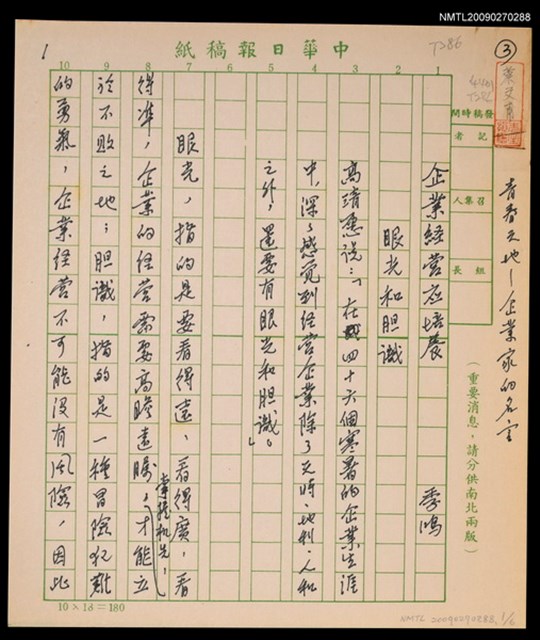 NMTL20090270288
中華日報稿紙
T386
③
1
發稿時間
記者
召集人
組長
(重要消息,請分供南北兩版)
青春天地—企業家的名言
10 9 8 7 6 5 4 3 2 1
企業経营应培養 季鴻
眼光和胆識
高清愿説:「在四十六個寒暑的企業生涯
中,深深感觉到経营企業除了天時、地利、人和
之外,還要有眼光和胆識。」
眼光,指的是要看得遠、看得廣,看
得准,企業的経营需要高瞻遠矚,掌握机先,才能立
於不敗之地;胆識,指的是一種冒險犯難
的勇氣,企業経营不可能没有風險,因此
10×18=180
NMTL 20090270288 1/6